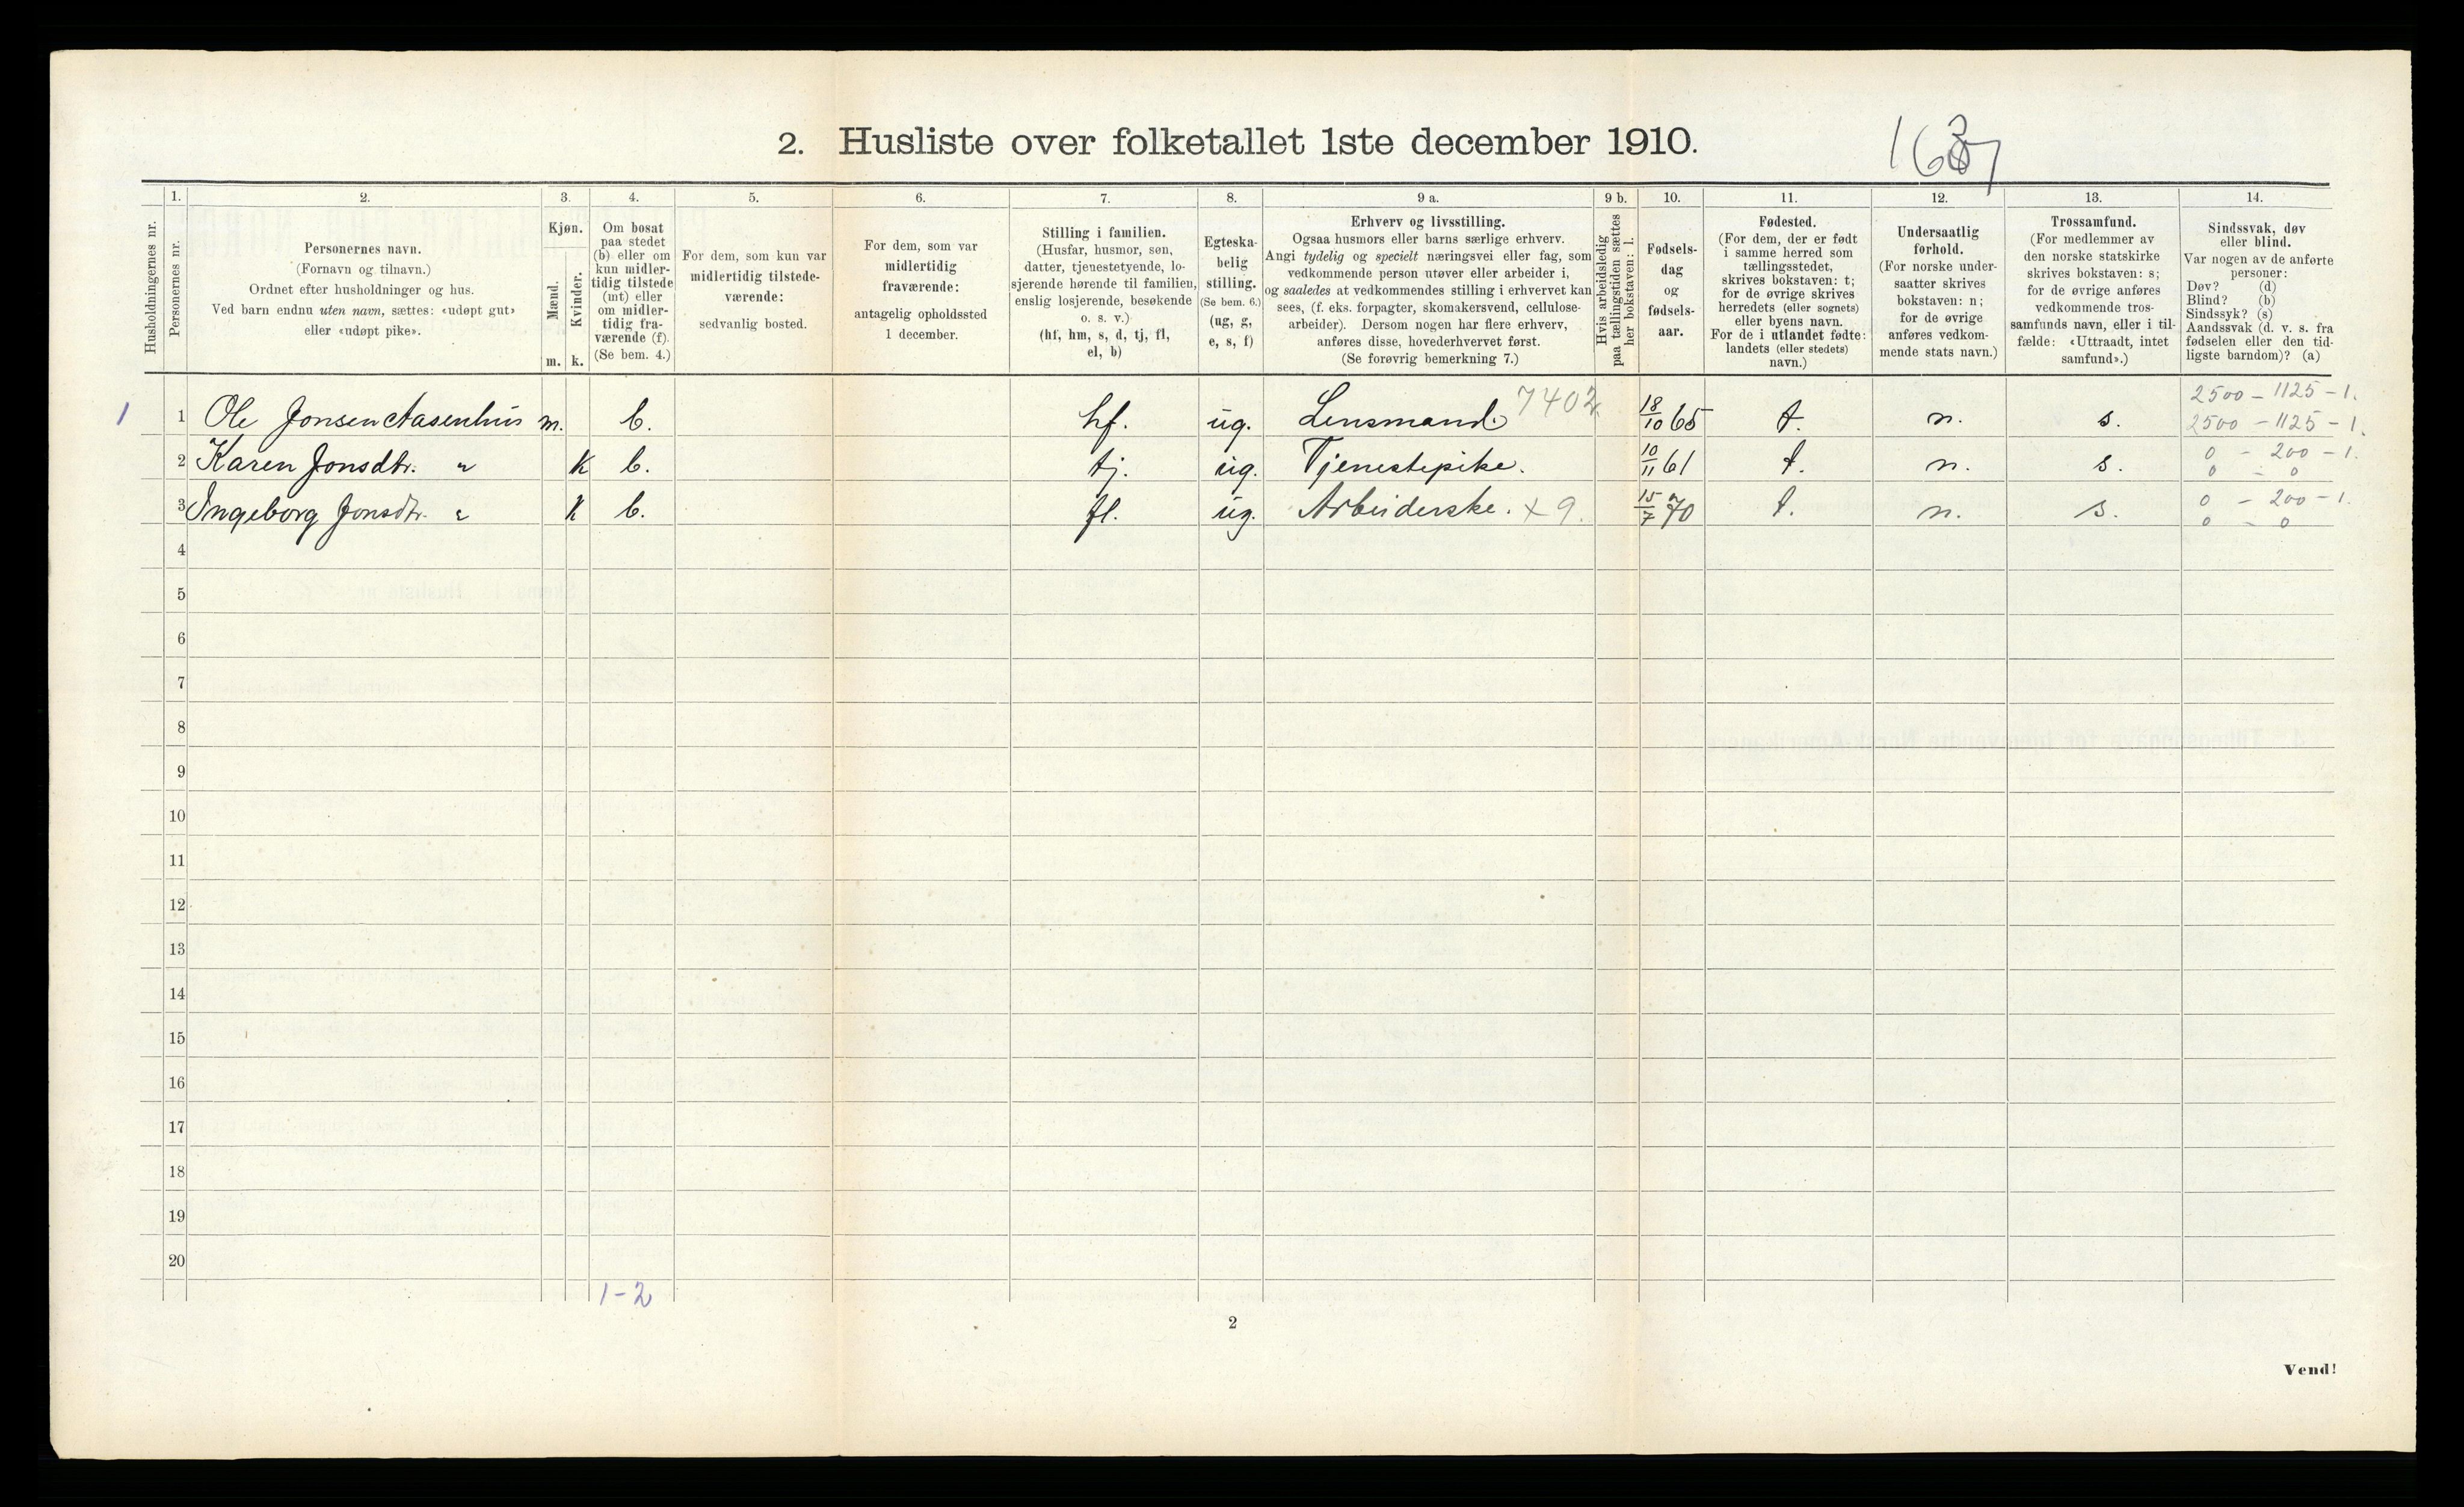 2. Husliste over folketallet 1ste december 1910.
1. 2. 3. 4. 5. 6. 7. 8. 9 a. 9 b. 10. 11. 12. 13. 14.
Husholdningernes nr.
Personernes nr.
Personernes navn.
(Fornavn og tilnavn.)
Ordnet efter husholdninger og hus.
Ved barn endnu uten navn, sættes: «udøpt gut»
eller «udøpt pike».
Kjøn.
Mænd.
Kvinder.
m. k.
Om bosat
paa stedet
(b) eller om
kun midler-
tidig tilstede
(mt) eller
om midler-
tidig fra-
værende (f).
(Se bem. 4.)
For dem, som kun var
midlertidig tilstede-
værende:
sedvanlig bosted.
For dem, som var
midlertidig
fraværende:
antagelig opholdssted
1 december.
Stilling i familien.
(Husfar, husmor, søn,
datter, tjenestetyende, lo-
sjerende hørende til familien,
enslig losjerende, besøkende
o. s. v.)
(hf, hm, s, d, tj, fl,
el, b)
Egteska-
belig
stilling.
(Se bem. 6.)
(ug, g,
e, s, f)
Erhverv og livsstilling.
Ogsaa husmors eller barns særlige erhverv.
Angi tydelig og specielt næringsvei eller fag, som
vedkommende person utøver eller arbeider i,
og saaledes at vedkommendes stilling i erhvervet kan
sees, (f. eks. forpagter, skomakersvend, cellulose-
arbeider). Dersom nogen har flere erhverv,
anføres disse, hovederhvervet først.
(Se forøvrig bemerkning 7.)
Hvis arbeidsledig
paa tællingstiden sættes
her bokstaven: l.
Fødsels-
dag
og
fødsels-
aar.
Fødested.
(For dem, der er født
i samme herred som
tællingsstedet,
skrives bokstaven: t;
for de øvrige skrives
herredets (eller sognets)
eller byens navn.
For de i utlandet fødte:
landets (eller stedets)
navn.)
Undersaatlig
forhold.
(For norske under-
saatter skrives
bokstaven: n;
for de øvrige
anføres vedkom-
mende stats navn.)
Trossamfund.
(For medlemmer av
den norske statskirke
skrives bokstaven: s;
for de øvrige anføres
vedkommende tros-
samfunds navn, eller i til-
fælde: «Uttraadt, intet
samfund».)
Sindssvak, døv
eller blind.
Var nogen av de anførte
personer:
Døv? (d)
Blind? (b)
Sindssyk? (s)
Aandssvak (d. v. s. fra
fødselen eller den tid-
ligste barndom)? (a)
2500 - 1125 - 1.
1 1 Ole Jonsen Aasenhus m. b. hf. ug. Lensmand. 7402 18/10 65 t. n. s. 2500 - 1125 - 1.
2 Karen Jonsdtr. " K b. tj. ug. Tjenestepike. 10/11 61 t. n. s. 0 - 200 - 1.
0 - 0
3 Ingeborg Jonsdtr. " K b. fl. ug. Arbeiderske. x 9. 15/7 70 t. n. s. 0 - 200 - 1.
0 - 0
4
5
6
7
8
9
10
11
12
13
14
15
16
17
18
19
20
1-2
2
Vend!